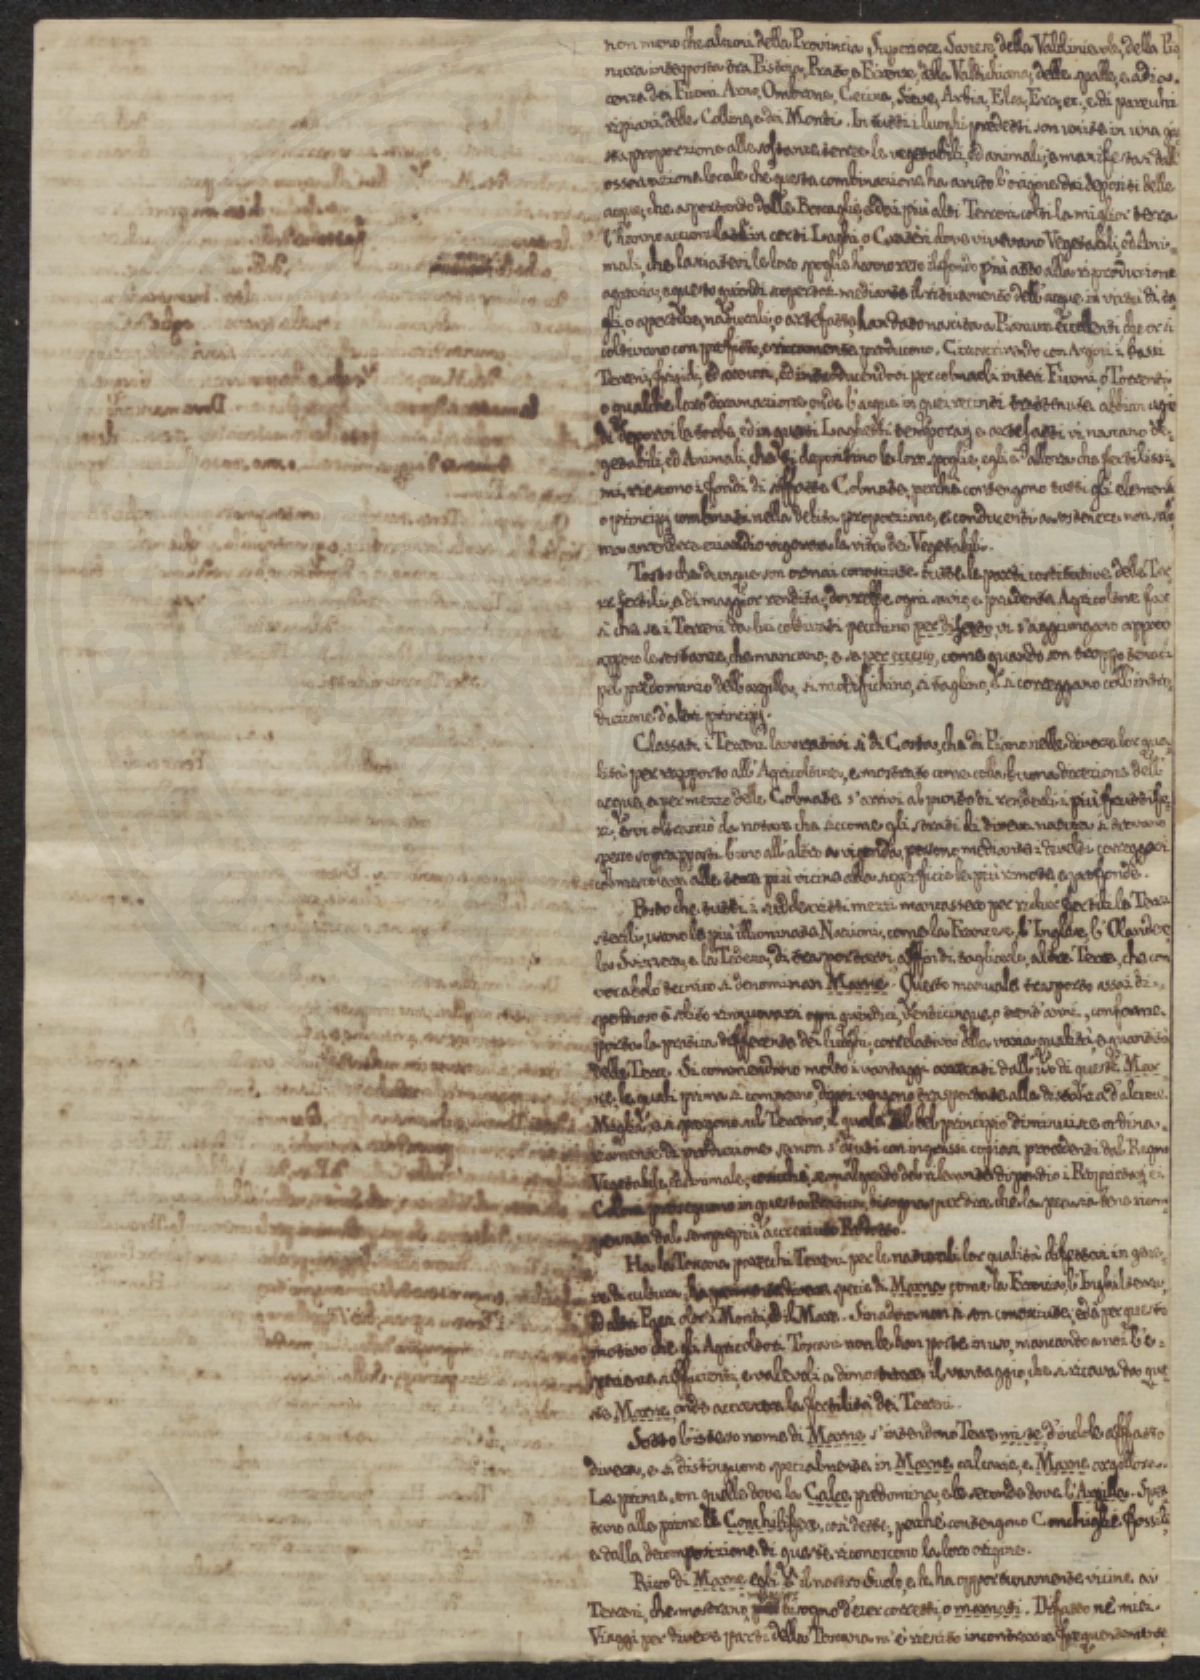 non meno che alcuni della Provincia Superiore Sanese, della Valdinievole, della Pia
nura interposta tra Pistoja, Prato, e Firenze, della Valdichiana, delle spalle, e adia-
cenze dei Fiumi Arno, Ombrone, Cecina, Sieve, Arbia, Elsa, Era, ec., e di parecchi
ripiani delle Colline, e dei Monti. In tutti i luoghi predetti son unite in una giu
sta proporzione alle sostanze terree le vegetabili, ed animali, e manifestasi dall'
osservazione locale che questa combinazione ha avuto l'origine dai depositi delle
acque, che asportando dalle Boscaglie, e dai più alti Terreni colti la miglior terra
l'hanno accumulata in certi Laghi, o Crateri dove vivevano Vegetabili, ed Ani-
mali, che lasciatevi le loro spoglie hanno reso il fondo più atto alla riproduzione
agraria, e questo quindi scopertosi mediante il ritiramento dell'acque in virtù di ta
gli, o aperture, naturali, o artefatte, han dato nascita a Pianure eccellenti che or si
coltivano con profitto, e riccamente producono. Circoscrivendo con Argini i bassi
Terreni, frigidi, ed acquosi, ed introducendovi per colmarli interi Fiumi, o Torrenti,
o qualche loro diramazione onde l'acque in quei recinti trattenute abbian agio
di deporvi la torba, ed in questi Laghetti temporarj e artefatti vi nascano Ve-
getabili, ed Animali, che vi depositino le loro spoglie, egli è allora che fertilissi-
mi riescono i fondi di siffatte Colmate, perchè contengono tutti gli elementi
o principj combinati nella debita proporzione, e conducenti a sostenere non solo
ma a rendere eziandio vigorosa la vita dei Vegetabili.
Tosto che dunque son ormai conosciute tutte le parti costitutive delle Ter
re fertili, e di maggior rendita, dovrebbe ogni savio, e prudente Agricoltore far
sì che se i Terreni da lui coltivati peccano per difetto vi s'aggiungano appoco
appoco le sostanze, che mancano; e se per eccesso, come quando son troppo tenaci
pel predominio dell'argilla, si modifichino, si taglino, e si correggano coll'intro-
duzione d'altri principj.
Classati i Terreni lavorativi sì di Costa, che di Piano nelle diverse lor qua-
lità per rapporto all'Agricoltura, e mostrato come colla buona direzione dell'
acque, e per mezzo delle Colmate s'arrivi al punto di renderli i più fruttife-
ri, evvi oltracciò da notare che siccome gli strati di diversa natura si trovano
spesso sovrapposti l'uno all'altro a vicenda, possono mediante i divelti correggersi
col mescolare alle terre più vicine alla superficie le più remote, e profonde.
Posto che tutti i suddescritti mezzi mancassero per ridur fertili le Terre
sterili, usano le più illuminate Nazioni, come la Francese, l'Inglese, l'Olandese,
la Svizzera, e la Tedesca, di trasportarvi, affin di tagliarle, altre Terre, che con
vocabolo tecnico si denominan Marne. Questo manuale trasporto assai di-
spendioso è solito rinnuovarsi ogni quindici, venticinque, o trent'anni, conforme
porta la pratica differente dei luoghi, correlativa alla varia qualità, e quantità
delle Terre. Si commendano molto i vantaggi arrecati dall'uso di queste Mar-
ne, le quali prima si comprano, dipoi vengono trasportate alla distanza d'alcune
Miglia, e si spargono sul Terreno, il quale sul bel principio diminuisce ordina-
riamente di produzione, se non s'aiuti con ingrassi copiosi provenienti dal Regno
Vegetabile, ed Animale, cosicchè, e malgrado del rilevante dispendio i Proprietarj, e i
Coloni proseguono in questa Pratica, bisogna pur dire che la pecunia venga ricom
pensata dal sempre più accresciuto Prodotto.
Ha la Toscana parecchi Terreni per le naturali lor qualità difettosi in gene-
re di cultura, ha pure diverse specie di Marne, come la Francia, l'Inghilterra,
ed altri Paesi oltre i Monti, ed il Mare. Sin adora non si son conosciute, ed è per questo
motivo che gli Agricoltori Toscani non le han poste in uso, mancando a noi l'e-
sperienze sufficienti, e valevoli a dimostrare il vantaggio, che si ricava da que
ste Marne, onde accrescer la fertilità dei Terreni.
Sotto l'istesso nome di Marne s'intendono Terre miste d'indole affatto
diversa, e si distinguono specialmente in Marne calcarie, e Marne argillose.
Le prime son quelle dove la Calce predomina, e le seconde dove l'Argilla. Spet
tano alle prime le Conchilifere, così dette, perchè contengono Conchiglie fossili
e dalla decomposizione di queste riconoscono la loro origine.
Ricco di Marne egli è il nostro Suolo, e le ha opportunamente vicine ai
Terreni, che mostrano bisogno d'esser corretti, o marnati. Difatto ne' miei
Viaggi per diverse parti della Toscana m'è riescito incontrarne frequentemente